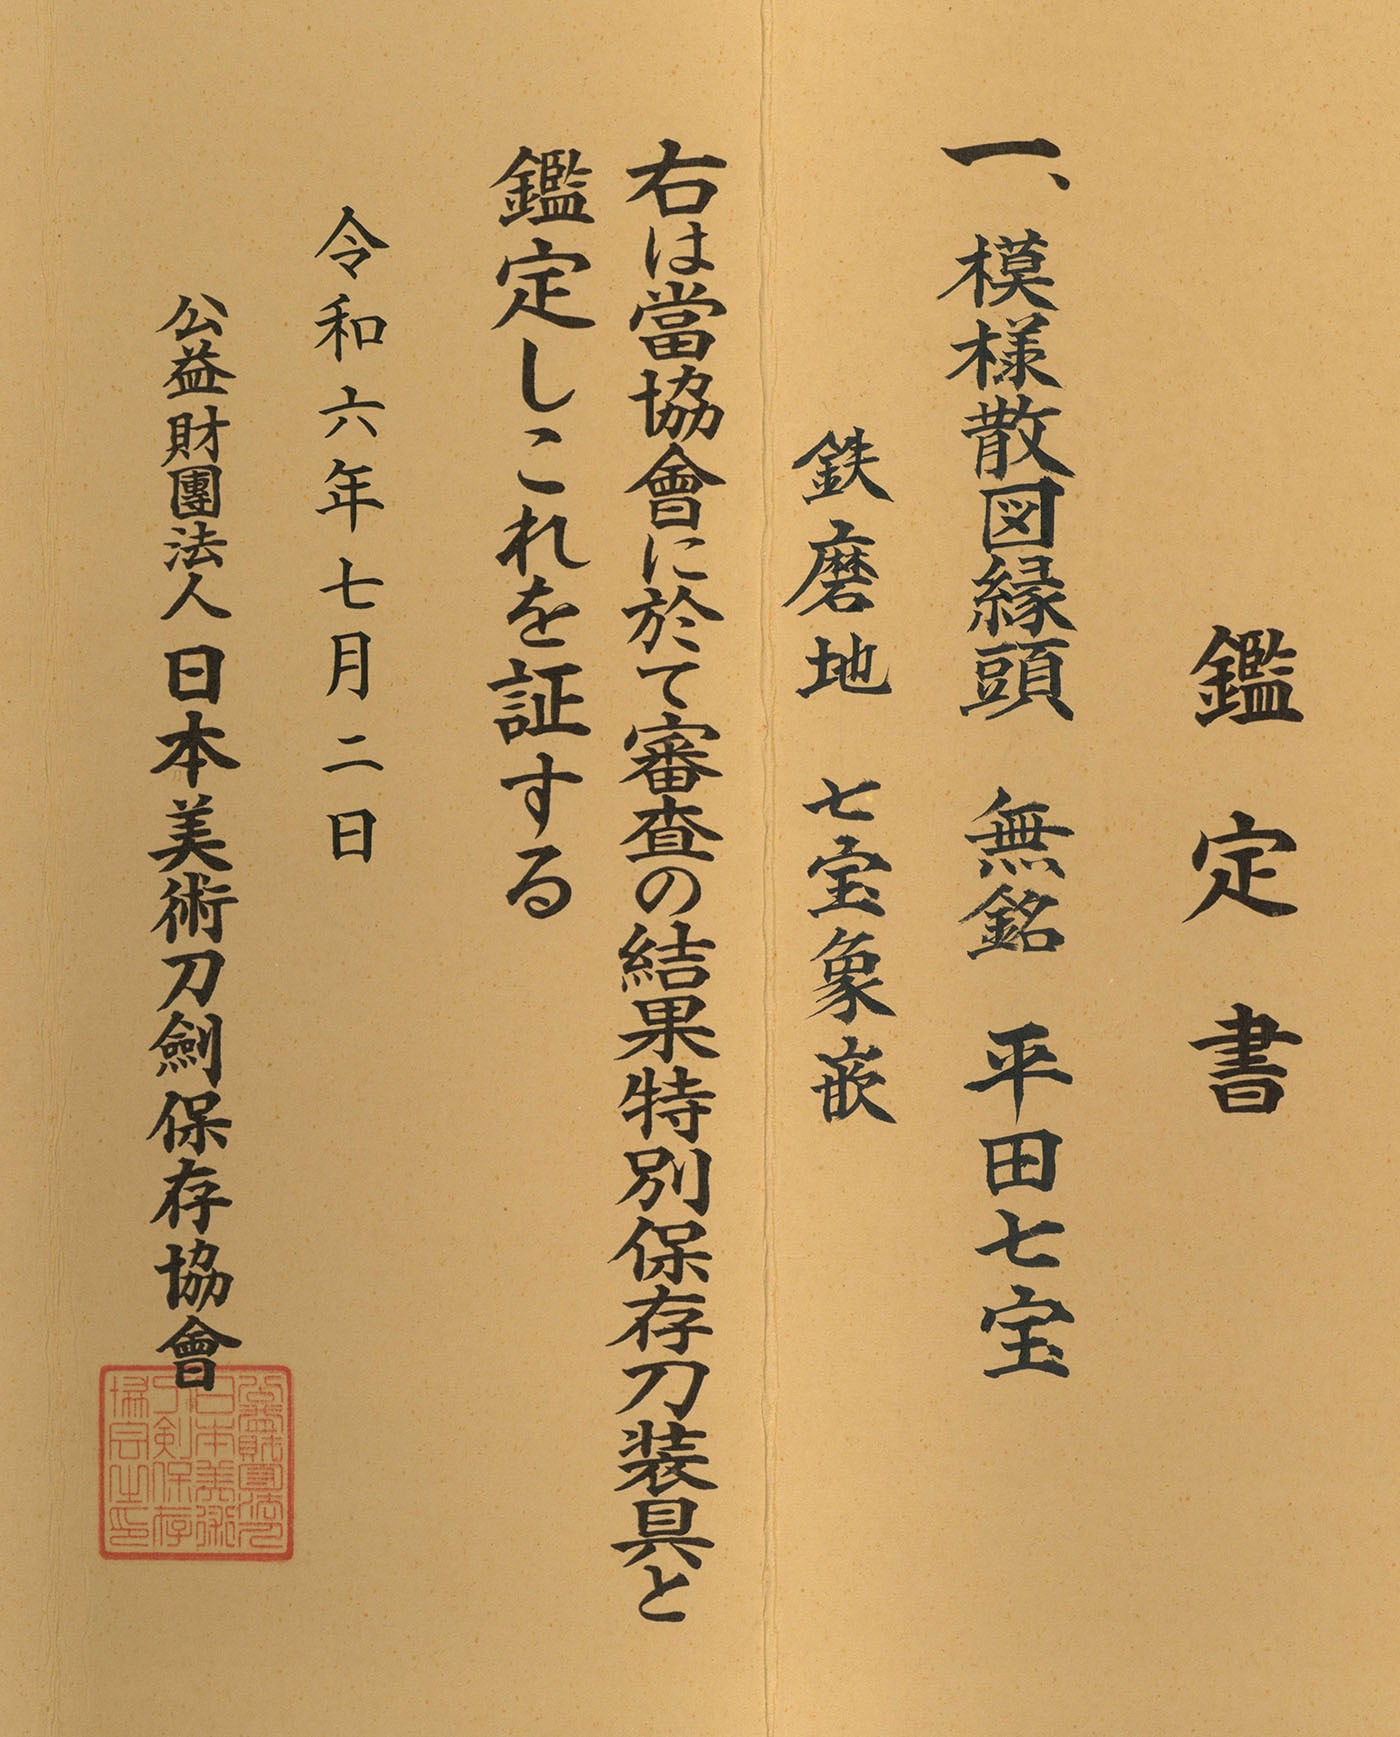 鑑定書
一、模様散図縁頭　無銘　平田七宝
鉄磨地　七宝象嵌
右は當協會に於て審査の結果特別保存刀装具と
鑑定しこれを証する
令和六年七月二日
公益財團法人日本美術刀劍保存協會
公益財團法人
日本美術
刀剣保存
協会之印